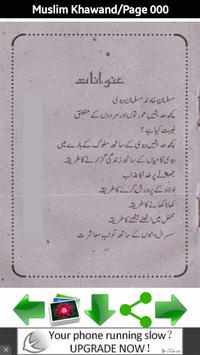 Muslim Khawand/Page 000
عنوانات
مسلمان خاوند مسلمان بیوی
کچھ حدیثیں عورتوں اور مردوں کے متعلق
کیا ہے ؟
کچھ حدیثیں بیوی کے ساتھ سلوک کے بارے میں
بیوی کا میاں کے ساتھ زندگی گزارنے کا طریقہ
پر خدا کا عذاب
اولاد کے پرورش کرنے کا طریقہ
کھانا کھانے کا طریقہ
محفل میں اٹھنے بیٹھنے کا طریقہ
سسرال والوں کے ساتھ آداب معاشرت
Your phone running slow ?
UPGRADE NOW !